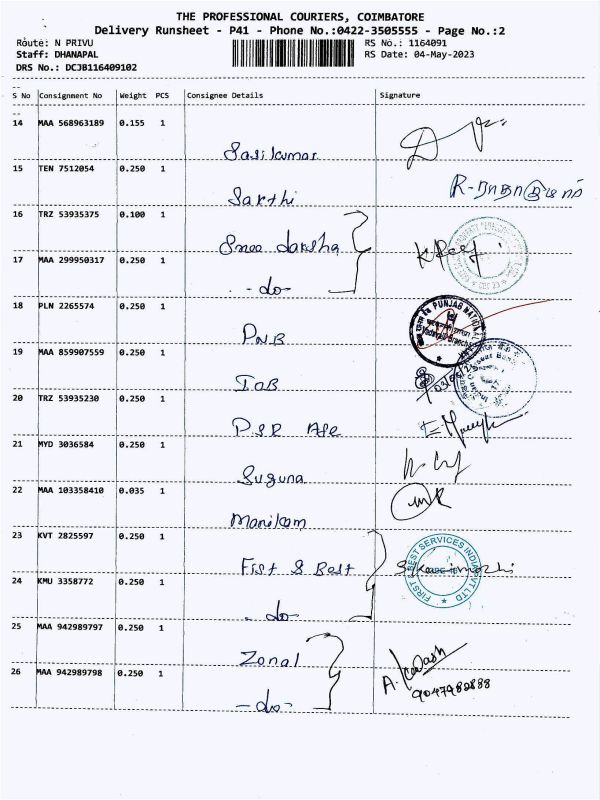 THE PROFESSIONAL COURIERS, COIMBATORE
Delivery Runsheet - P41 - Phone No.:0422-3505555 - Page No.:2
Route: N PRIVU RS No.: 1164091
Staff: DHANAPAL RS Date: 04-May-2023
DRS No.: DCJB116409102
S No Consignment No Weight PCS Consignee Details Signature
14 MAA 568963189 0.155 1
Sasikumar
15 TEN 7512054 0.250 1
Sakthi
16 TRZ 53935375 0.100 1
Sree daksha
17 MAA 299950317 0.250 1
-do-
18 PLN 2265574 0.250 1
PNB
19 MAA 859907559 0.250 1
IOB
20 TRZ 53935230 0.250 1
21 MYD 3036584 0.250 1
Suguna
22 MAA 103358410 0.035 1
Manikam
23 KVT 2825597 0.250 1
Fist & Best
FIRST & BEST SERVICES INDIA PVT LTD
24 KMU 3358772 0.250 1
-do-
25 MAA 942989797 0.250 1
Zonal
26 MAA 942989798 0.250 1
-do-